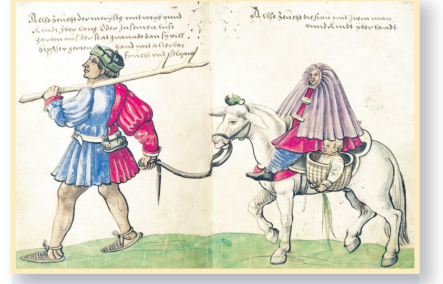 Allso Zeucht der morysg mit weyb vnnd
kindt, yber lang Oder In seinen lust
garten aus der stat granada dan sy vill
hipscher gerten hand mit allerlay
frucht vnd
Allso Zeucht die frau mit Irem man
vnnd kindt yber landt